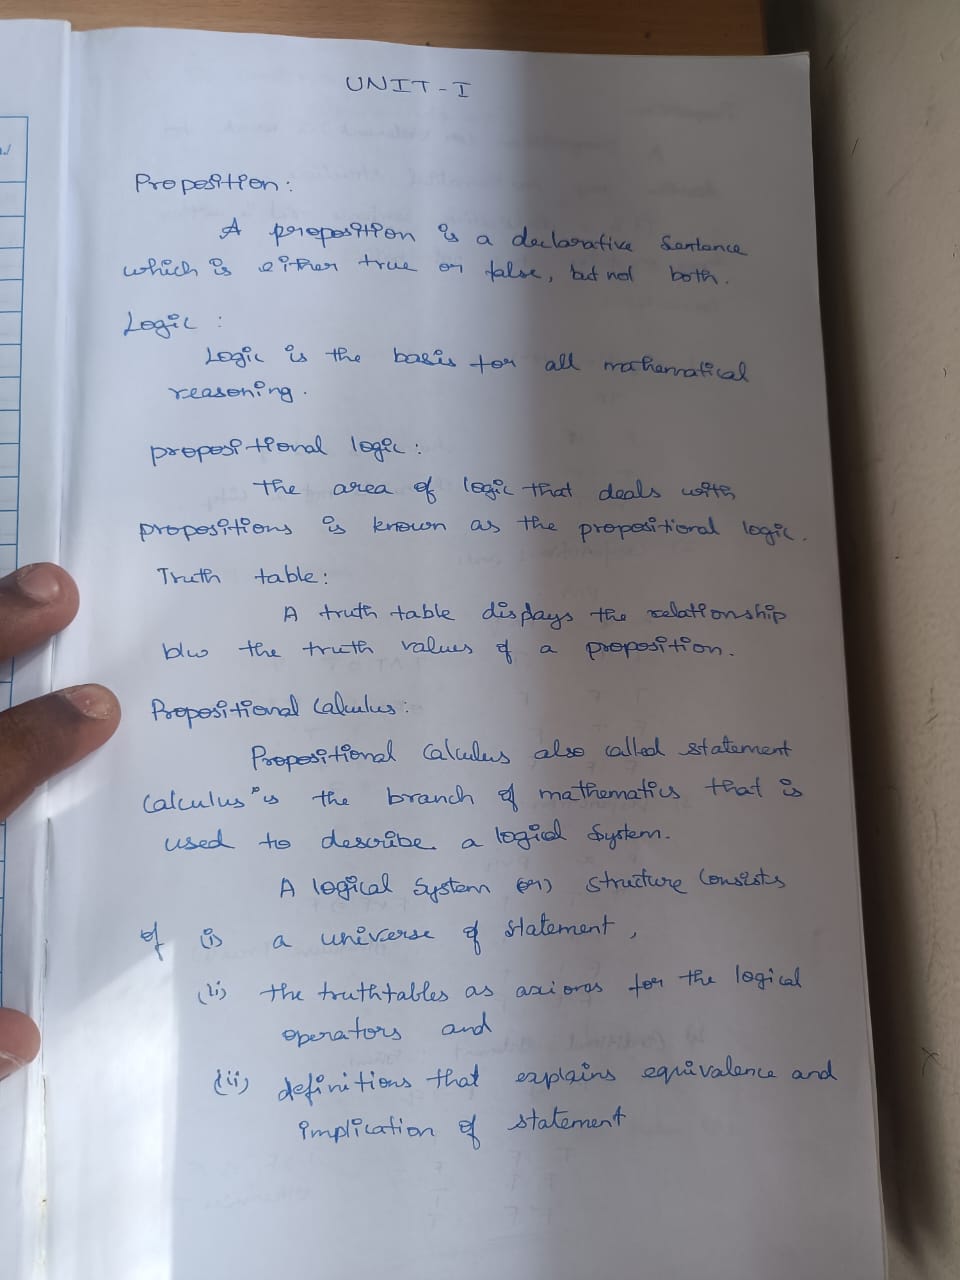 UNIT-I
Proposition:
A proposition is a declarative sentence
which is either true or false, but not both.
Logic :
Logic is the basis for all mathematical
reasoning.
propositional logic:
The area of logic that deals with
propositions is known as the propositional logic.
Truth table:
A truth table displays the relationship
b/w the truth values of a proposition.
Propositional Calculus:
Propositional Calculus also called statement
Calculus is the branch of mathematics that is
used to describe a logical System.
A logical System (or) structure Consists
of (i) a universe of statement,
(ii) the truthtables as axioms for the logical
operators and
(iii) definitions that explains equivalence and
implication of statement